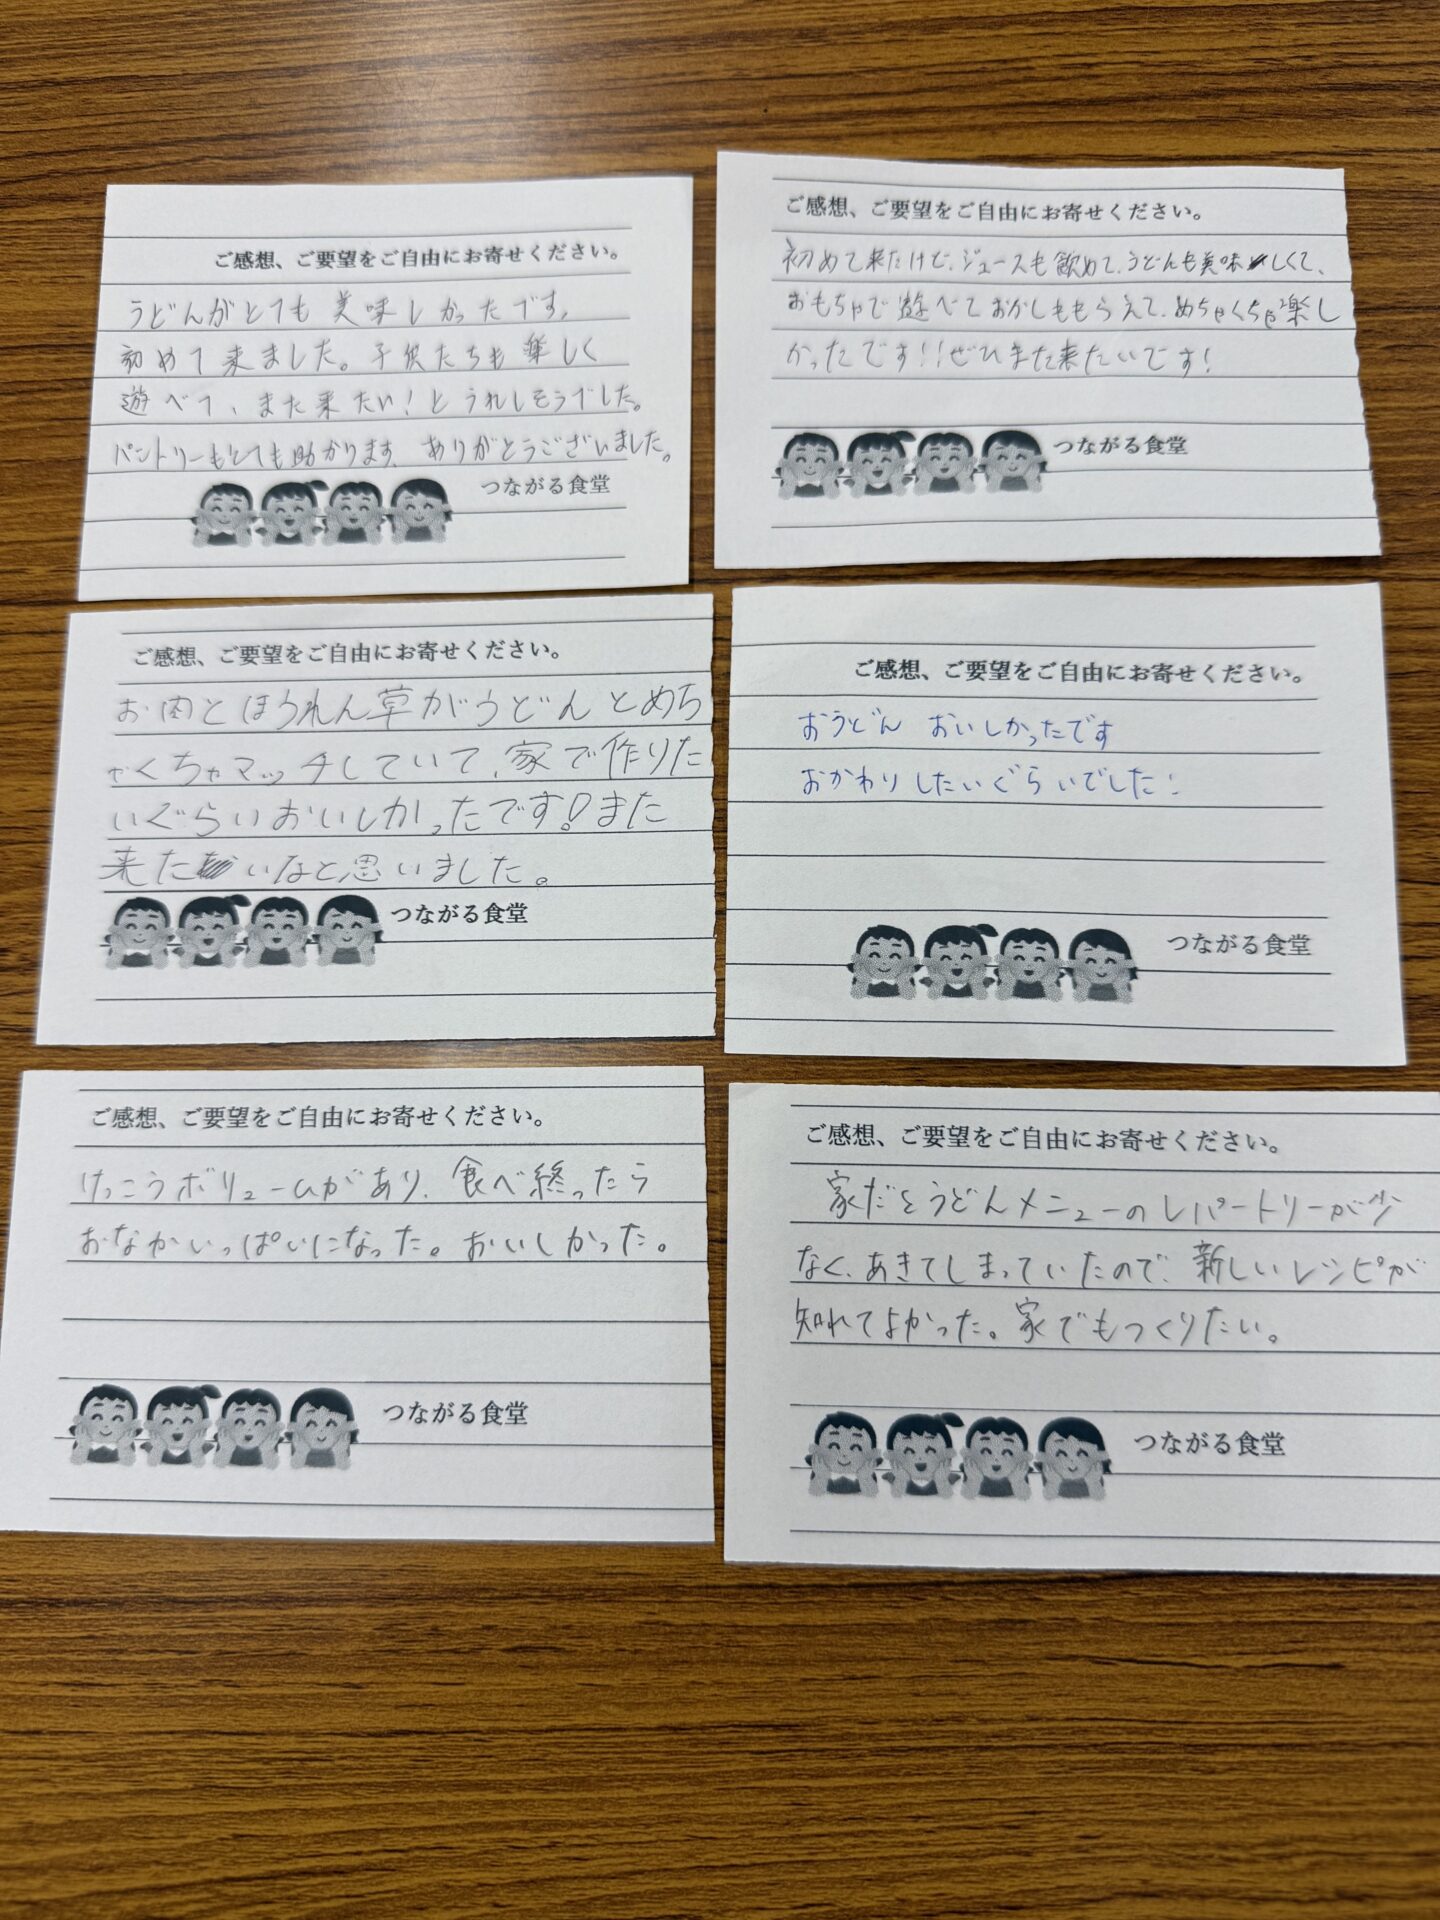 ご感想、ご要望をご自由にお寄せください。
うどんがとても美味しかったです。
初めて来ました。子供たちも楽しく
遊べて、また来たい!とうれしそうでした。
パントリーもとても助かります。ありがとうございました。
つながる食堂
ご感想、ご要望をご自由にお寄せください。
初めて来たけど、ジュースも飲めて、うどんも美味しくて、
おもちゃで遊べておかしももらえて、めちゃくちゃ楽し
かったです!!ぜひまた来たいです!
つながる食堂
ご感想、ご要望をご自由にお寄せください。
お肉とほうれん草がうどんとめち
ゃくちゃマッチしていて、家で作りた
いぐらいおいしかったです!また
来たいなと思いました。
つながる食堂
ご感想、ご要望をご自由にお寄せください。
おうどん おいしかったです
おかわりしたいぐらいでした!
つながる食堂
ご感想、ご要望をご自由にお寄せください。
けっこうボリュームがあり、食べ終ったら
おなかいっぱいになった。おいしかった。
つながる食堂
ご感想、ご要望をご自由にお寄せください。
家だとうどんメニューのレパートリーが少
なく、あきてしまっていたので、新しいレシピが
知れてよかった。家でもつくりたい。
つながる食堂